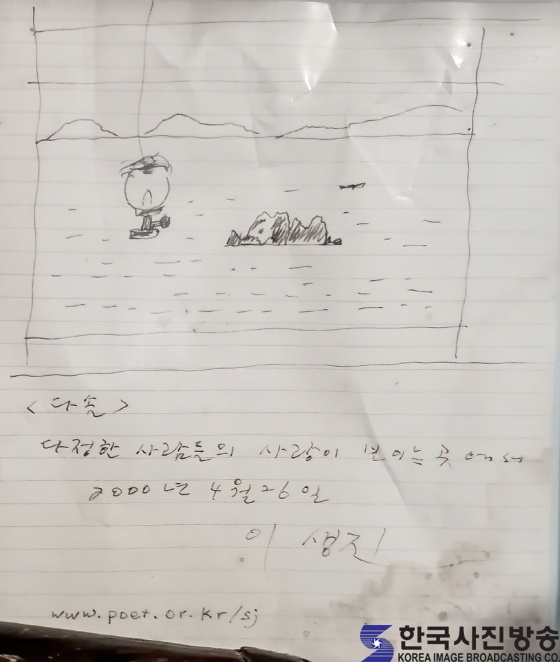 <다솔>
다정한 사람들의 사랑이 보이는 곳에서
2000년 4월 26일
이생진
www.poet.or.kr/sj
한국사진방송
KOREA IMAGE BROADCASTING CO